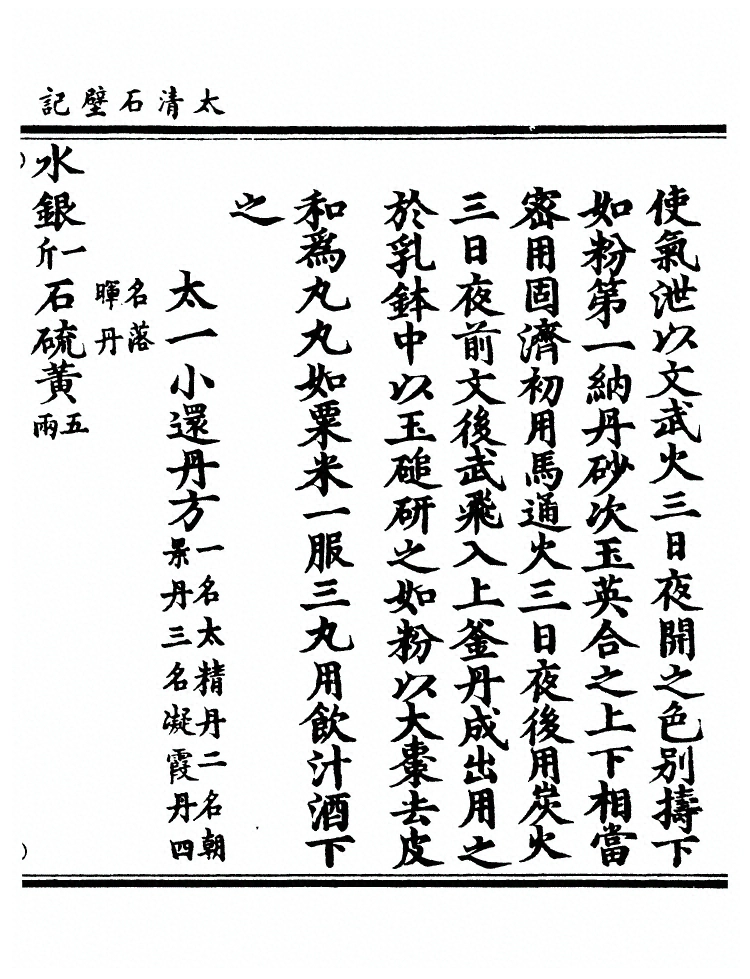 太清石壁記
使氣泄以文武火三日夜開之色别擣下
如粉第一納丹砂次玉英合之上下相當
密用固濟初用馬通火三日夜後用炭火
三日夜前文後武飛入上釜丹成出用之
於乳鉢中以玉磓研之如粉以大棗去皮
和為丸丸如粟米一服三丸用飲汁酒下
之
太一小還丹方一名太精丹二名朝
景丹三名凝霞丹四
名落
暉丹
水銀一斤石硫黃五兩